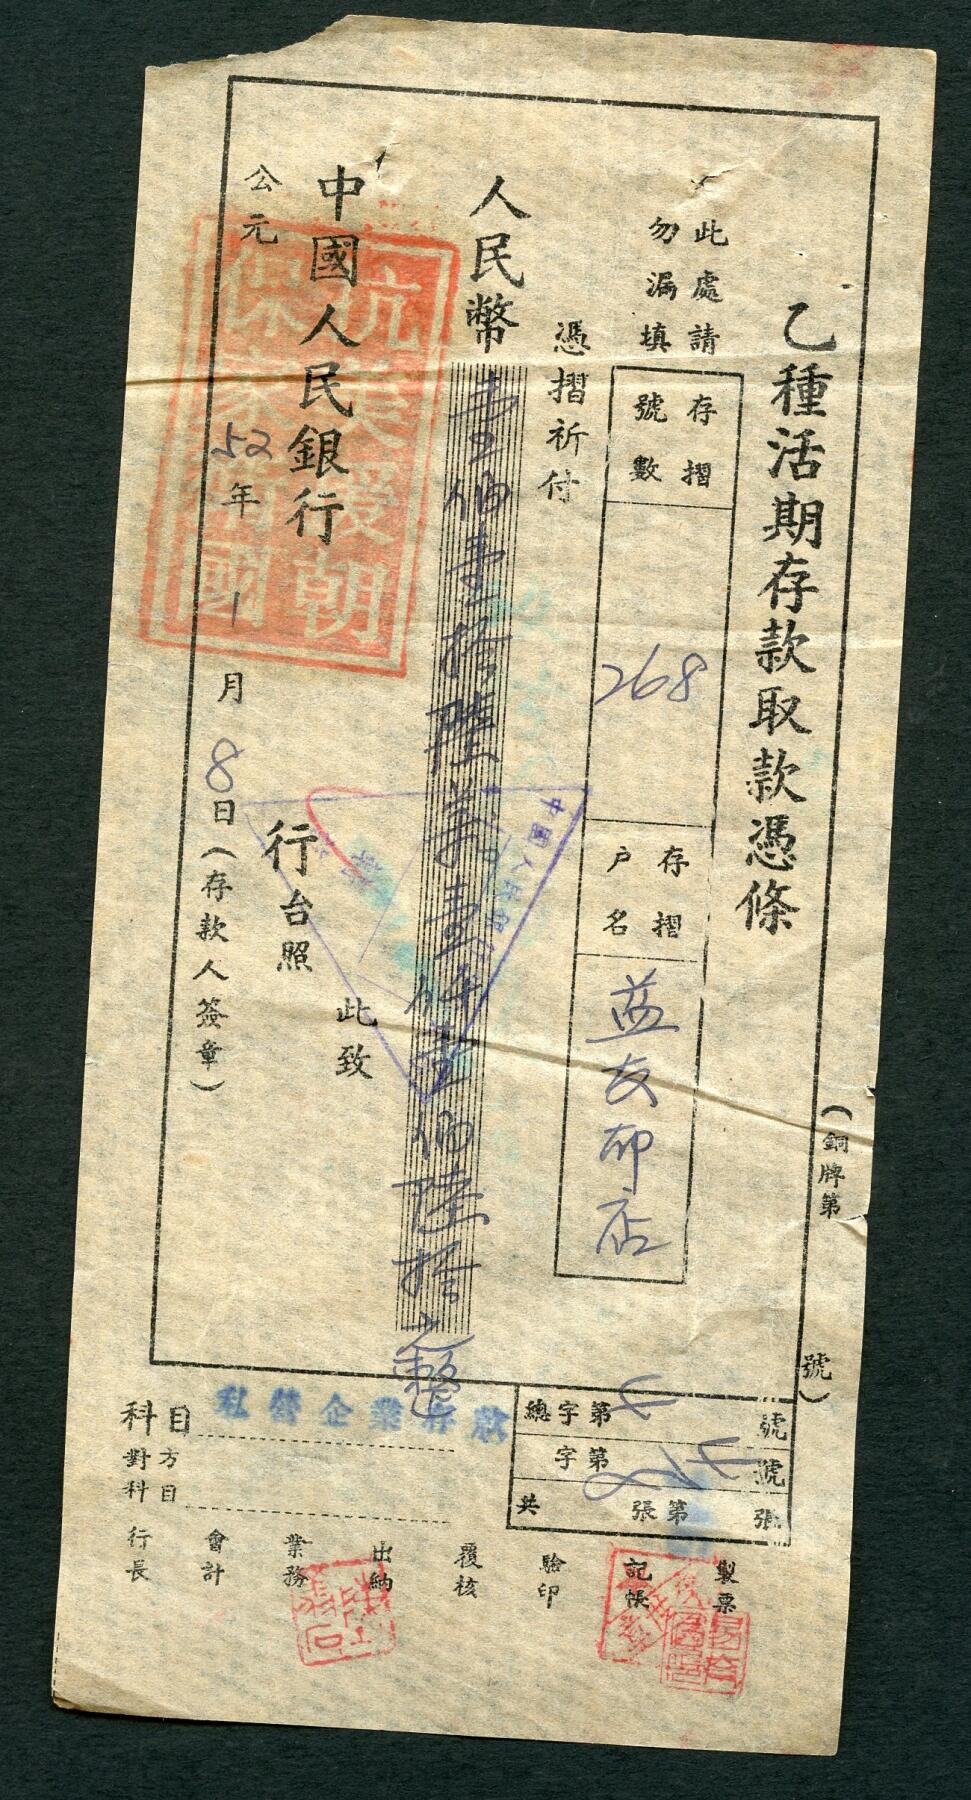 乙種活期存款取款憑條
(銅牌第 號)
此處請
勿漏填
存摺
號數
268
存摺
户名
益友印店
憑摺祈付
人民幣壹佰壹拾陸萬壹仟壹佰陸拾元整
此致
中國人民銀行 行台照
公元52年1月8日(存款人簽章)
抗美援朝
保家衛國
中國人民銀行
科目 私營企業存款
對方
科目
總字第 號
字第 號
共 張第 張
行長 會計 業務 出納 覆核 驗印 記帳 製票